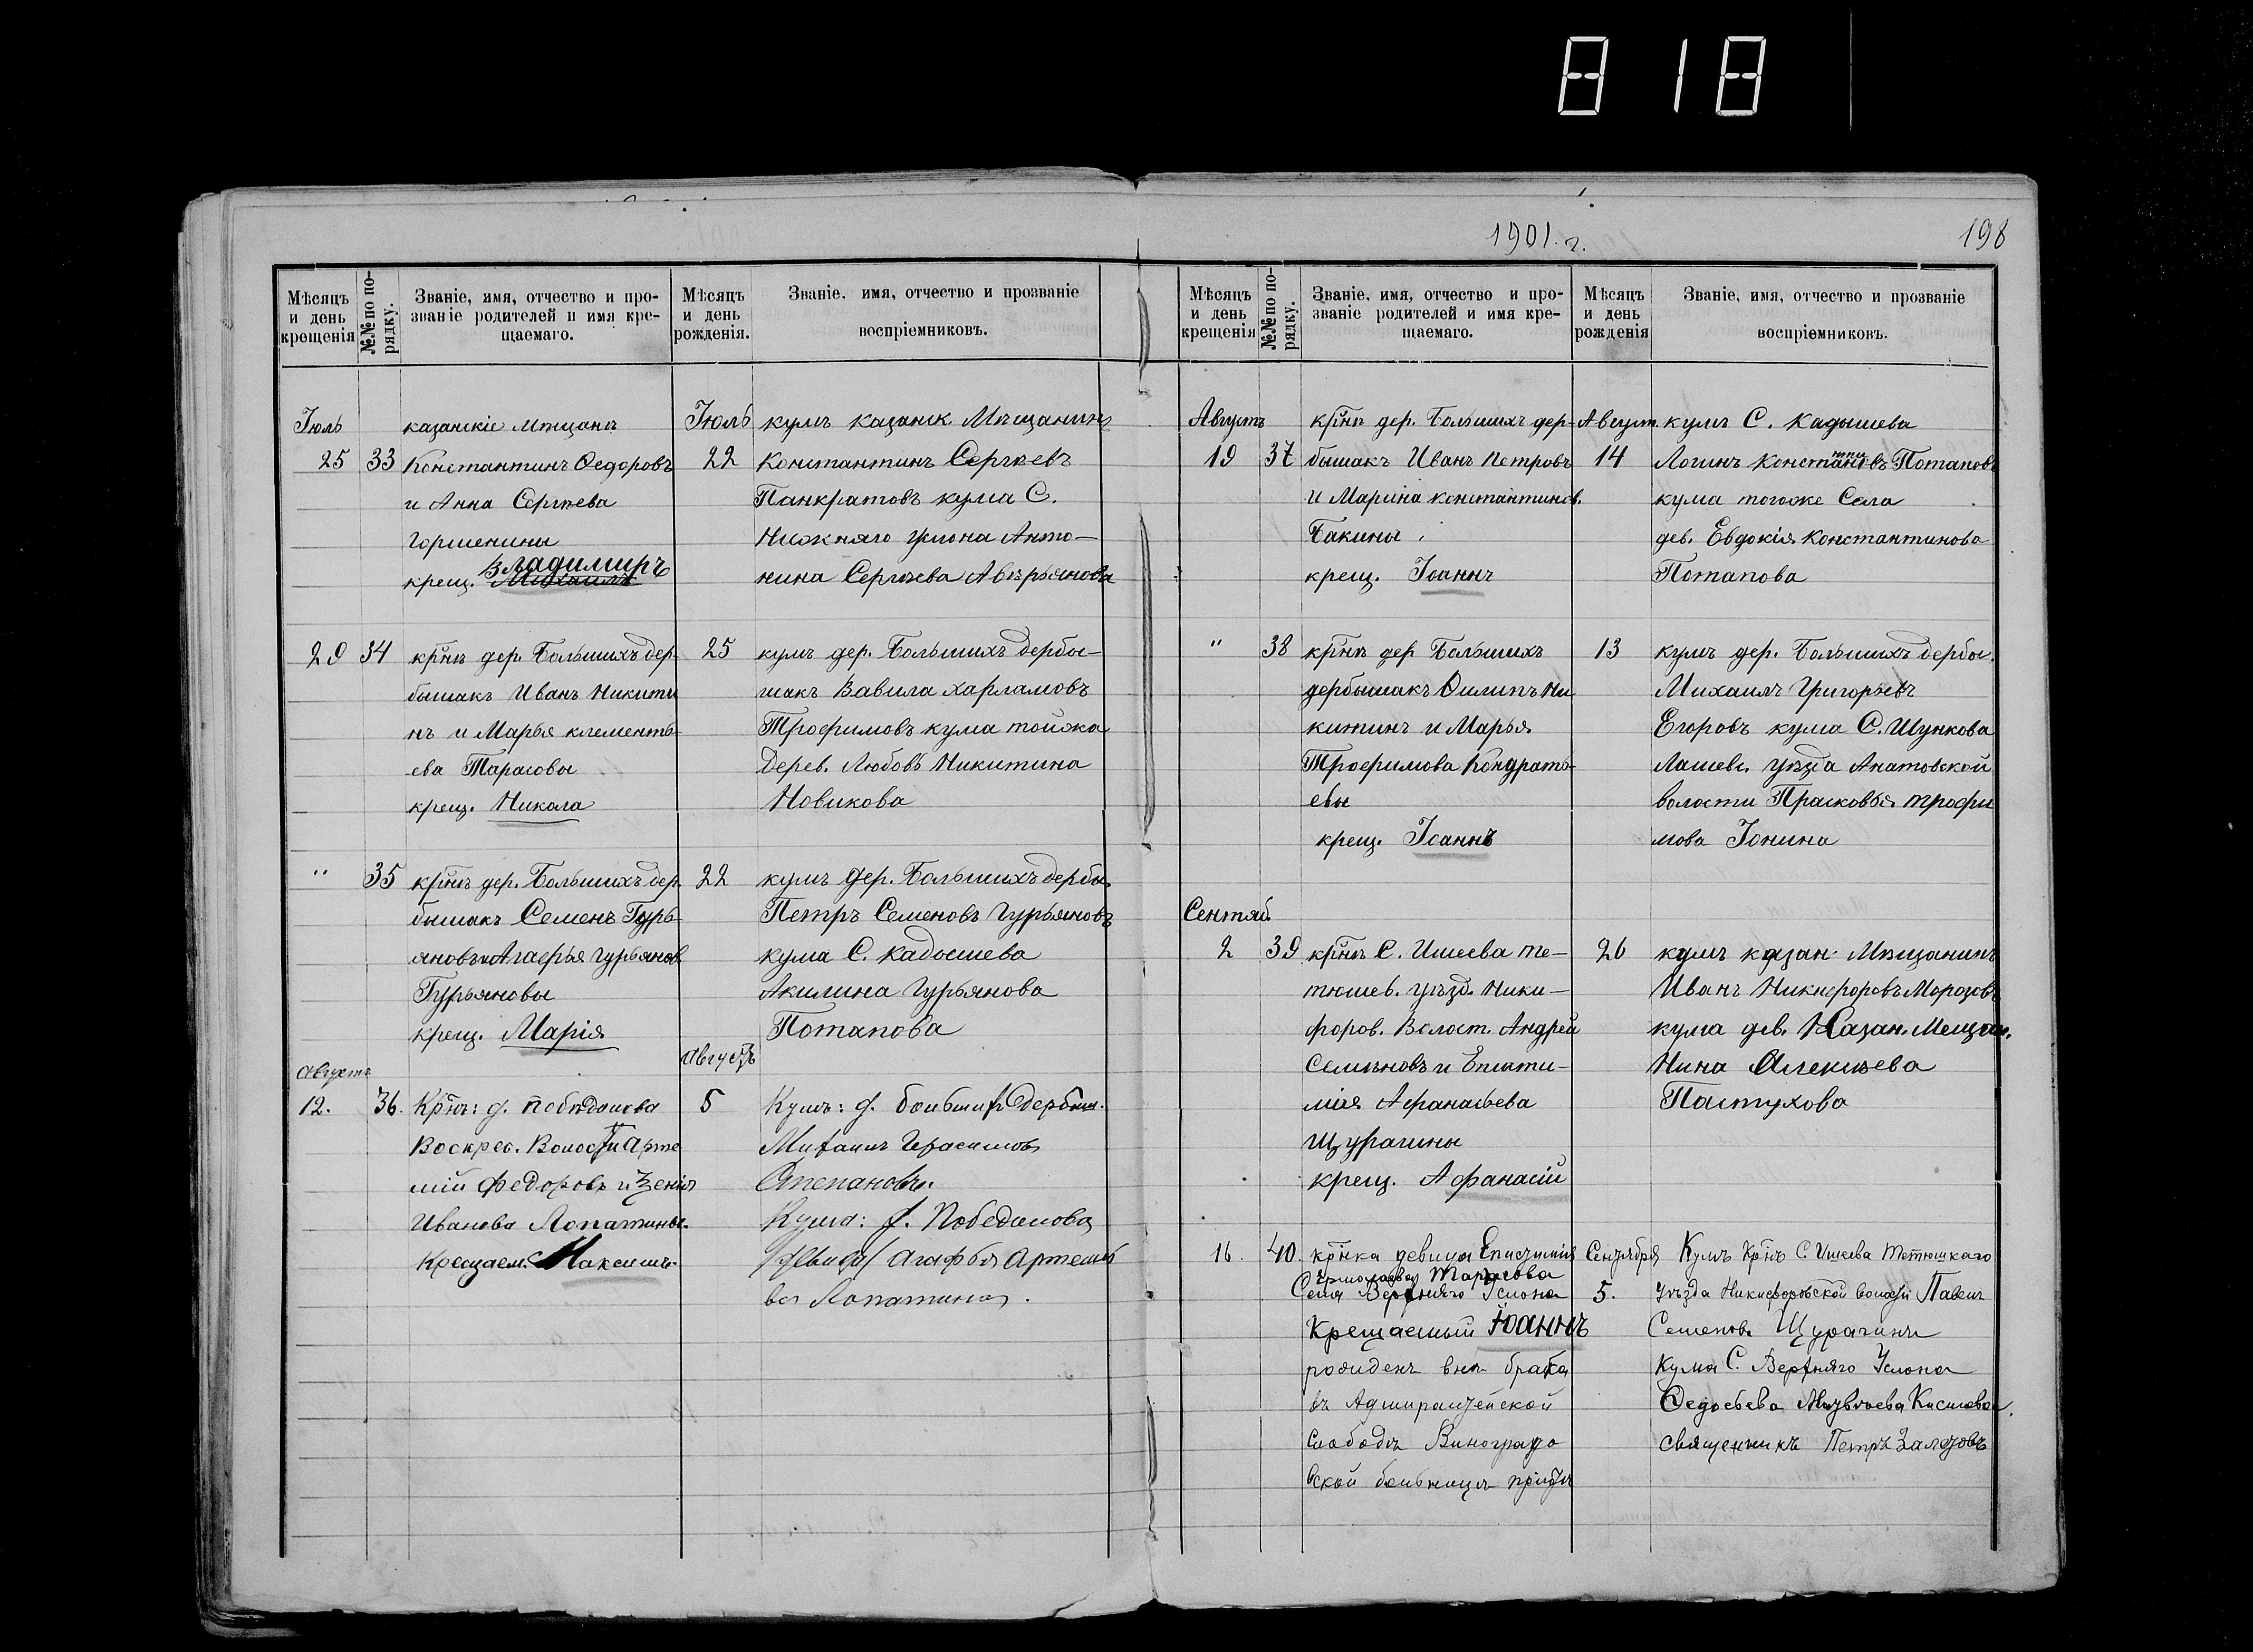 818
1901. г.
198
Мѣсяцъ и день крещенія
№№ по порядку.
Званіе, имя, отчество и прозваніе родителей и имя крещаемаго.
Мѣсяцъ и день рожденія.
Званіе, имя, отчество и прозваніе воспріемниковъ.
Іюль
25 33
казанскіе мѣщане
Константинъ Ѳедоровъ
и Анна Сергѣева
Горшенины
крещ. Владимиръ
Михаилъ
Іюль
22
кумъ казанск. Мѣщанинъ
Константинъ Сергѣевъ
Панкратовъ кума С.
Нижняго Услона Анто-
нина Сергѣева Аверьянова
29 34
крн̃е дер. Большихъ дер-
бышакъ Иванъ Никити
нъ и Марья клементь-
ева Тарасовы
крещ. Никола
25
кумъ дер. Большихъ дербы-
шакъ Вавила Харламовъ
Трофимовъ кума тойже
дерев. Любовь Никитина
Новикова
" 35
крн̃е дер. Большихъ дер
бышакъ Семенъ Гурь-
яновъ и Агафья Гурьянов
Гурьяновы
крещ. Марія
22
кумъ дер. Большихъ дербы
Петръ Семеновъ Гурьяновъ
кума С. Кадышева
Акилина Гурьянова
Потапова
Августъ
12. 36.
Крн̃е: д. Побѣдилова
Воскрес. Волости Арте
мій Федоровъ и Ксенія
Иванова Лопатины.
Крещаем. Максимъ.
Августъ
5
Кумъ: д. Большихъ Дербыш.
Михаилъ Герасимовъ
Степановъ.
Кума: д. Победилова
Дѣвица Агафья Артемь
ева Лопатина.
Мѣсяцъ и день крещенія
№№ по порядку.
Званіе, имя, отчество и прозваніе родителей и имя крещаемаго.
Мѣсяцъ и день рожденія
Званіе, имя, отчество и прозваніе воспріемниковъ.
Августъ
19 37
крн̃е дер. Большихъ дер-
бышакъ Иванъ Петровъ
и Марина константинов.
Бакины
крещ. Іоаннъ
Август.
14
кумъ С. Кадышева
Логинъ Константиновъ Потаповъ
кума тогоже Села
дев. Евдокія Константинова
Потапова
" 38
крн̃е дер Большихъ
дербышакъ Филипъ Ни
китинъ и Марья
Трофимова Кондрать-
евы
крещ. Іоаннъ
13
кумъ дер. Большихъ дербы.
Михаилъ Григорьевъ
Егоровъ кума С. Шункова
Лаишев. уѣзда Анатовской
волости Прасковья трофи
мова Іонина
Сентяб.
2 39
крн̃е С. Ишеева те-
тюшев. уѣзд. Ники-
форов. Волост. Андрей
Семеновъ и Еписти-
мія Афанасьева
Щурагины
крещ. Афанасій
26
кумъ казан. Мѣщанинъ
Иванъ Никифоровъ Морозовъ
кума дев. Казан. Мещан.
Нина Алексѣева
Пастухова
16. 40.
крн̃ка девица Епистимія
Ермолаева Тарасова
Села Верхняго Услона
Крещаемый Іоаннъ
рожденъ внѣ брака
въ Адмиралтейской
Слободѣ Виноградо
вской больницѣ
Сентября
5.
Кумъ Крн̃ъ С. Ишеева Тетюшкаго
Уѣзда Никифоровской волости Павелъ
Семеновъ Щурагинъ
Кума С. Верхняго Услона
Ѳедосьева
священникъ Петръ Залезовъ